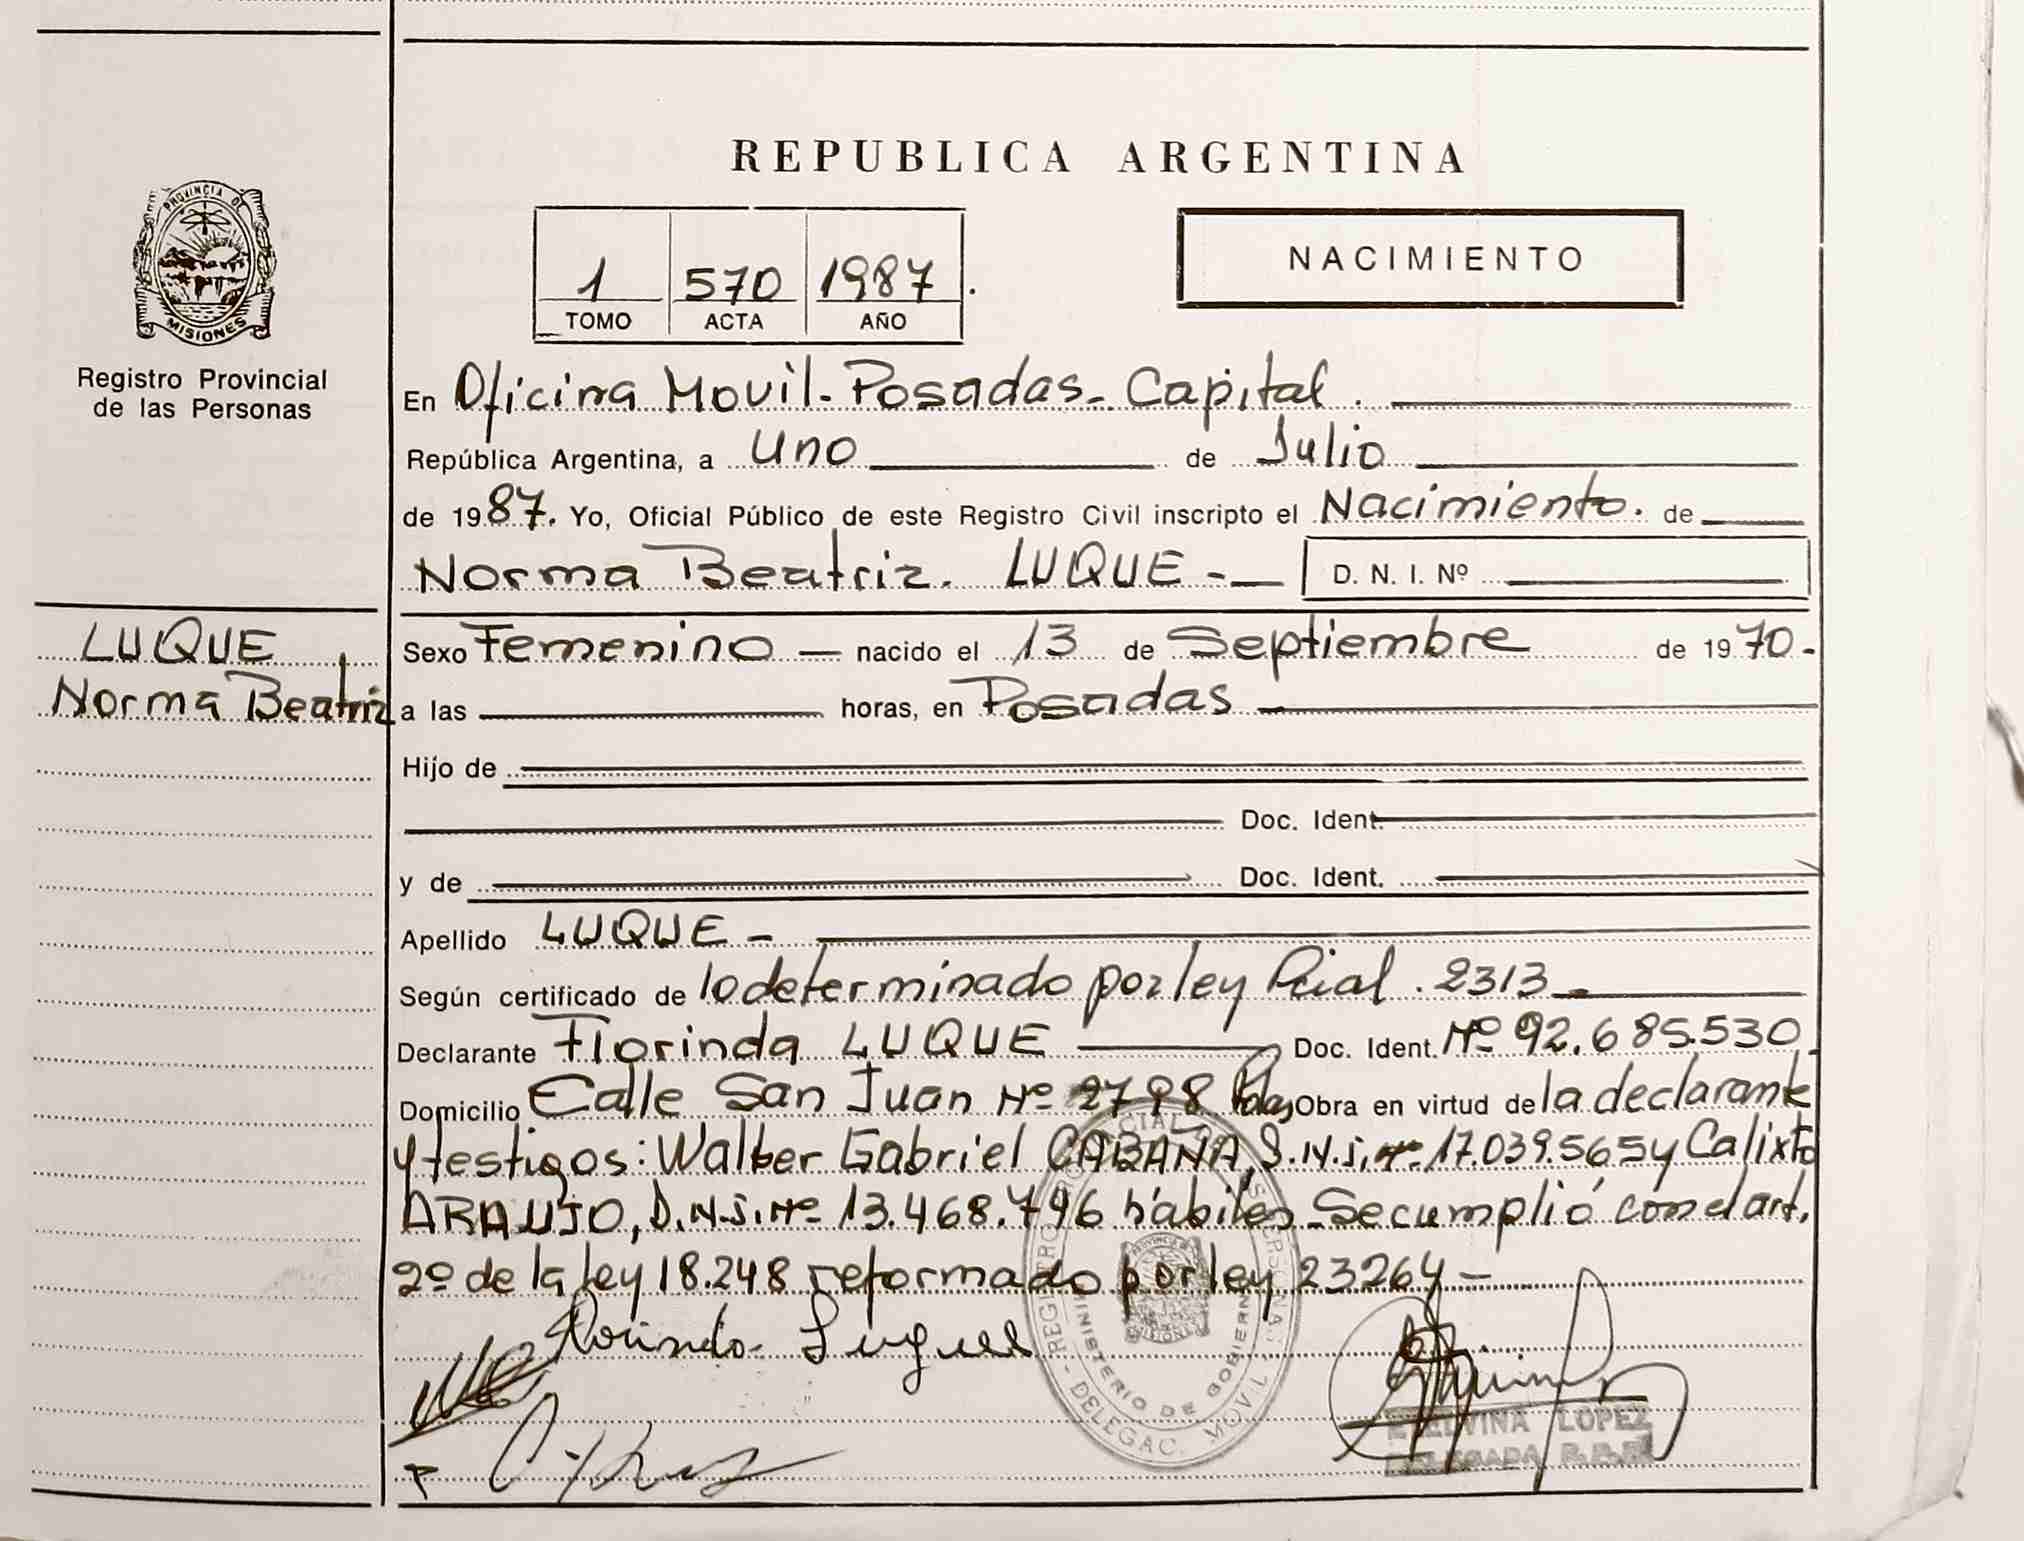 PROVINCIA DE
MISIONES
Registro Provincial
de las Personas
LUQUE
Norma Beatriz
REPUBLICA ARGENTINA
1 570 1987.
TOMO ACTA AÑO
NACIMIENTO
En Oficina Movil - Posadas - Capital.
República Argentina, a Uno de Julio
de 1987. Yo, Oficial Público de este Registro Civil inscripto el Nacimiento. de
Norma Beatriz. LUQUE - D. N. I. Nº
Sexo Femenino - nacido el 13 de Septiembre de 1970 -
a las horas, en Posadas
Hijo de
Doc. Ident.
y de Doc. Ident.
Apellido LUQUE -
Según certificado de lo determinado por ley Pcial. 2313 -
Declarante Florinda LUQUE Doc. Ident. Nº 92.685.530.
Domicilio Calle San Juan Nº 2798 Pdas Obra en virtud de la declarante
y testigos: Walter Gabriel CABAÑA, D.N.I. Nº 17.039.565 y Calixto
ARAUJO, D.N.I. Nº 13.468.796 hábiles. Se cumplió con el art.
2º de la ley 18.248 reformado por ley 23264 -
Florinda Luque
REGISTRO PROVINCIAL DE LAS PERSONAS - DELEGAC. MOVIL -
MINISTERIO DE GOBIERNO
PROVINCIA DE
MISIONES
LOPEZ
DELEGADA R.P.P.